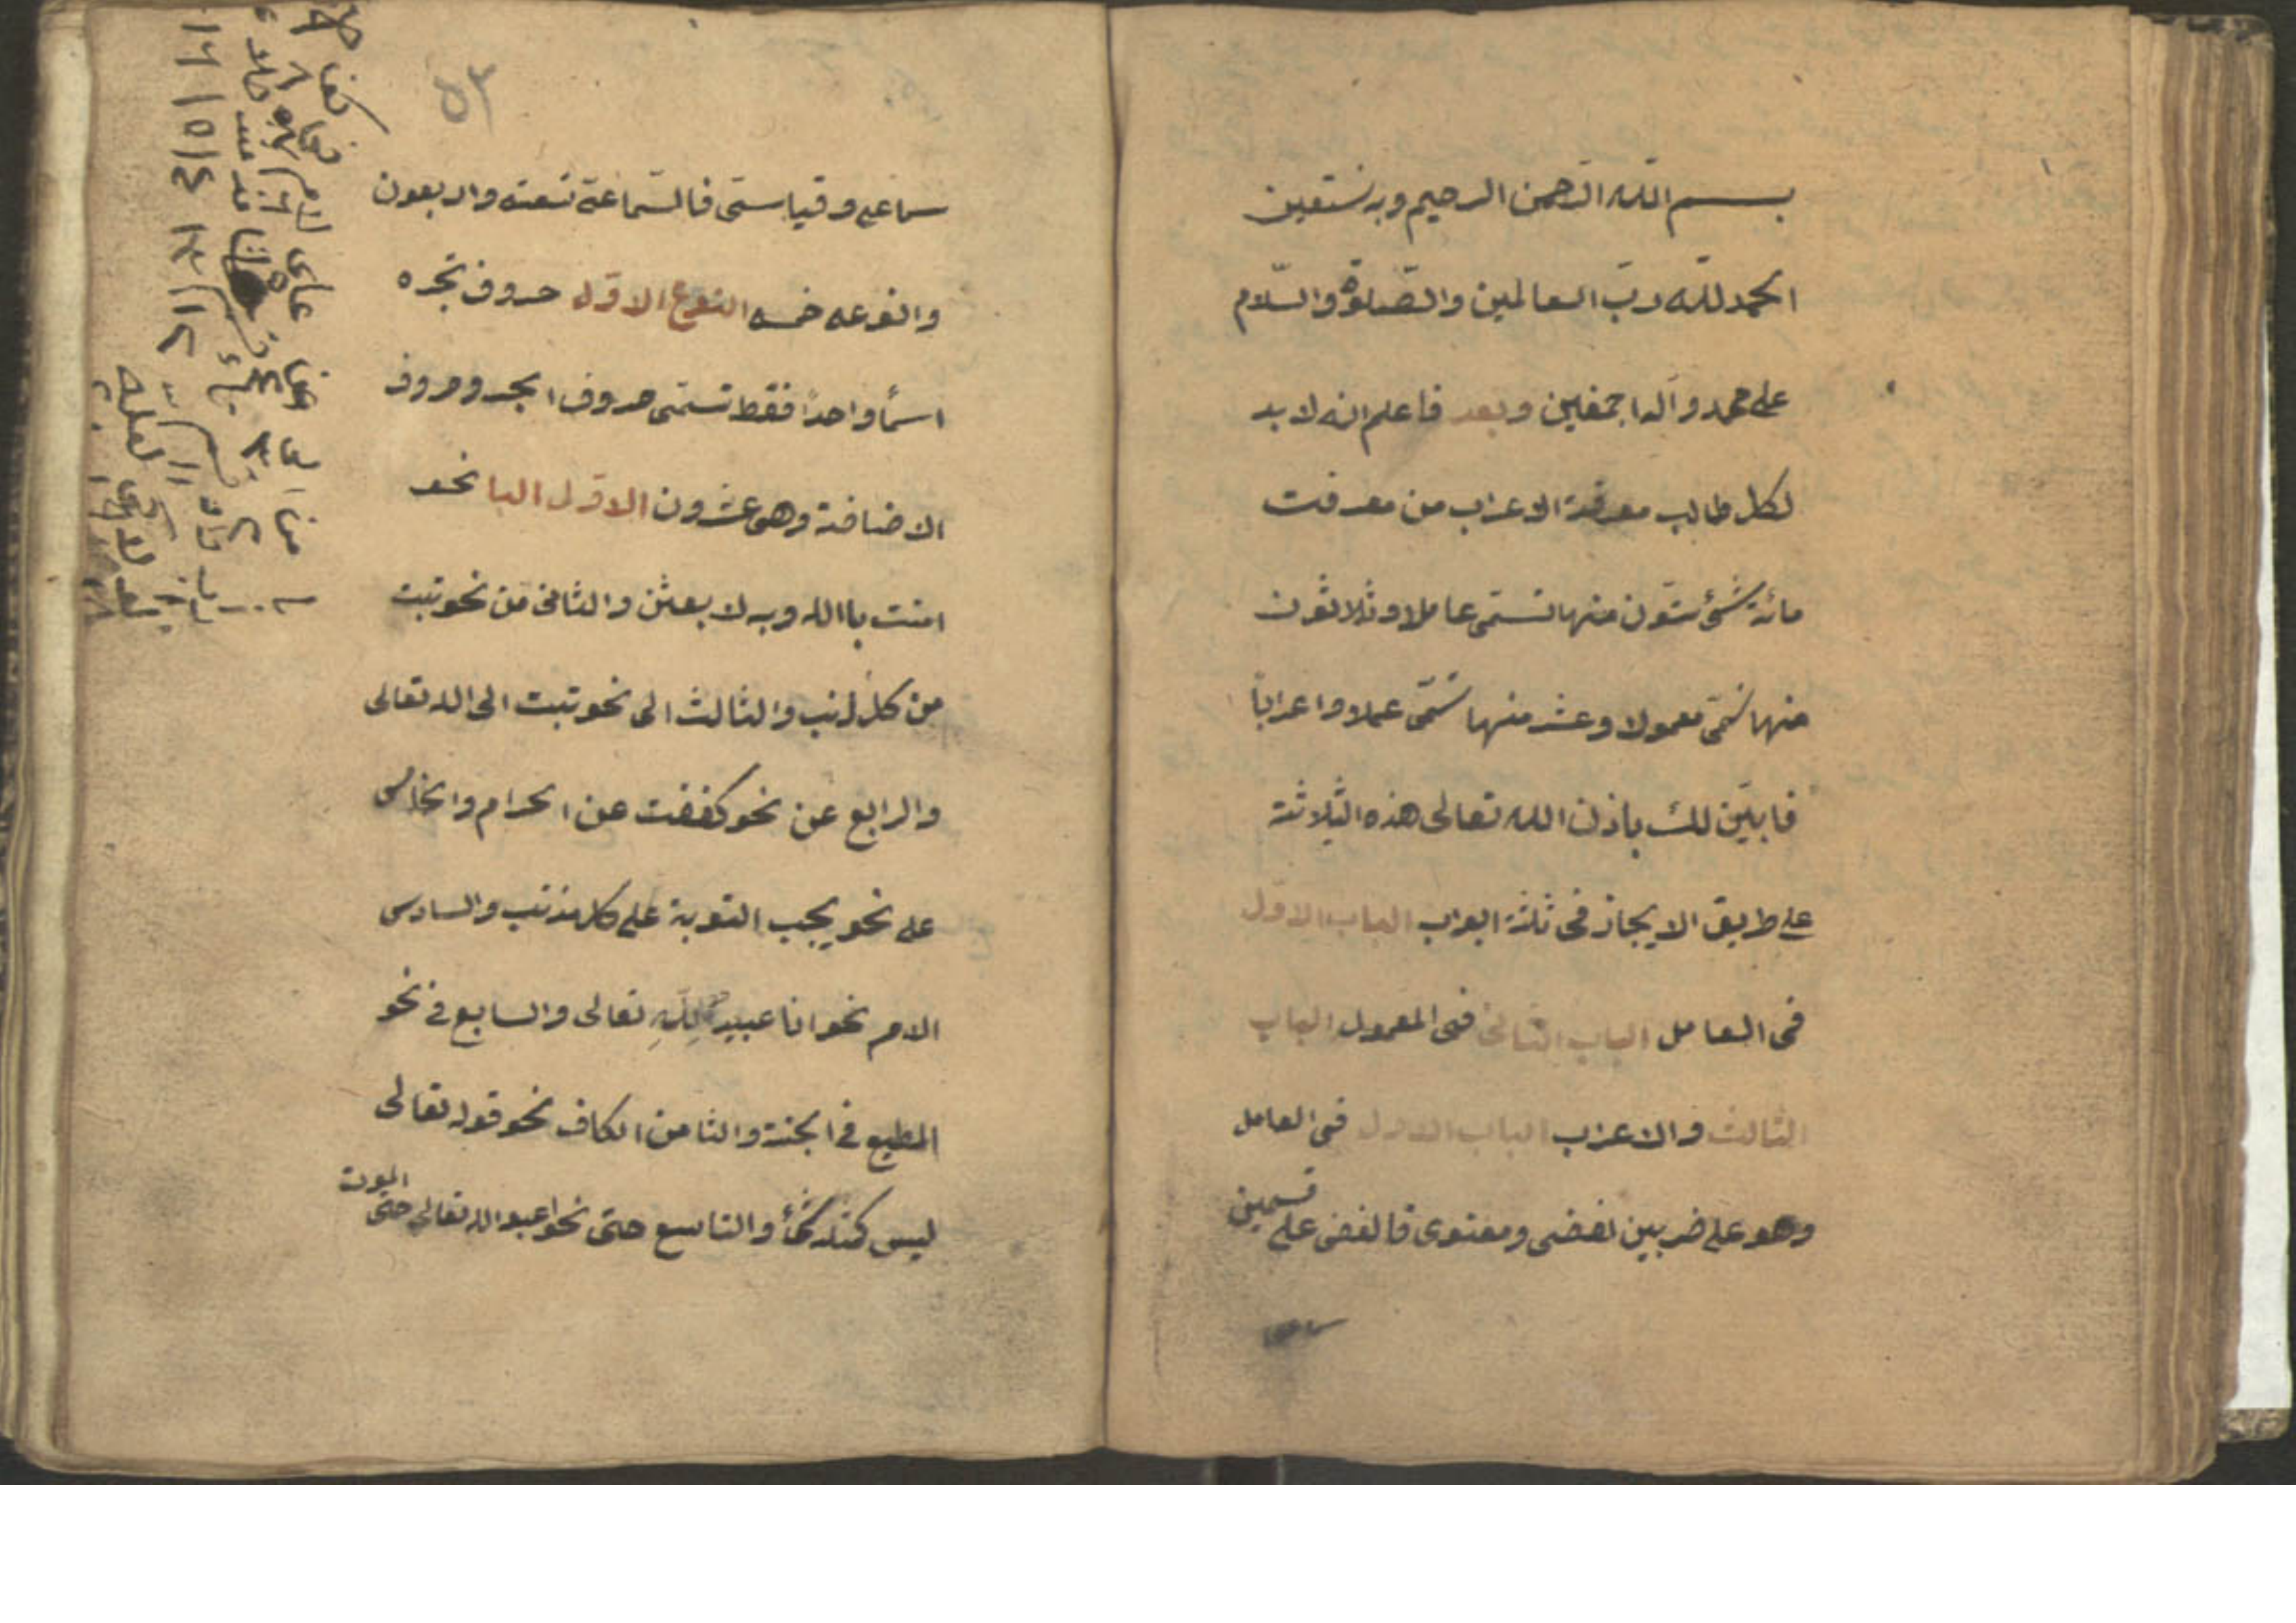 بسم الله الرحمن الرحيم وبه نستعين
الحمد لله ربّ العالمين والصّلوة والسّلام
على محمد وآله اجمعين وبعد فاعلم انه لا بد
لكل طالب معرفة الاعراب من معرفت
مائة شئ ستّون منها تسمّى عاملا وثلاثون
منها تسمّى معمولا وعشر منها تسمّى عملا واعراباً
فابيّن لك باذن الله تعالى هذه الثلاثة
على طريق الايجاز فى ثلثة ابواب الباب الاول
فى العامل الباب الثانى فى المعمول الباب
الثالث فى الاعراب الباب الاول فى العامل
وهو على ضربين لفضى ومعنوى فالفضى على قسمين
سماعى
٥٣
سماعى وقياسى فالسّماعة تسعة واربعون
وانوعه خمسه النوع الاوّل حروف تجره
اسمأ واحداً فقط تسمّى حروف الجر وحروف
الاضافة وهى عشرون الاوّل البا نحو
امنت باالله وبه لابعثن والثانى من نحو تبت
من كل ذنب والثالث الى نحو تبت الى الله تعالى
والرابع عن نحو كففت عن الحرام والخامس
على نحو يجب التوبة على كل مذنب والسادس
الام نحو انا عبيد لله تعالى والسابع فى نحو
المطيع فى الجنة والثامن الكاف نحو قوله تعالى
ليس كمثله شئ والتاسع حتى نحو اعبد الله تعالى حتى الموت